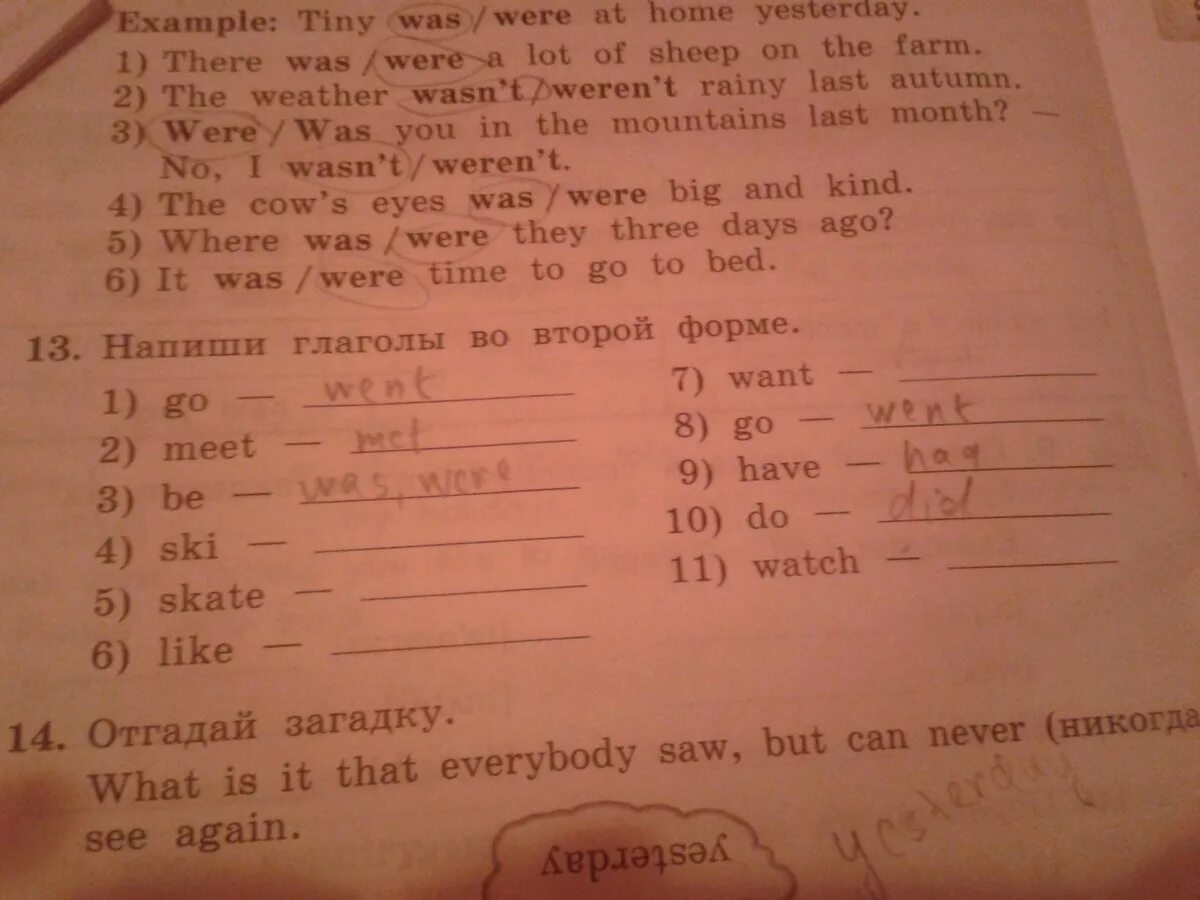 Example: Tiny was / were at home yesterday.
1) There was / were a lot of sheep on the farm.
2) The weather wasn't / weren't rainy last autumn.
3) Were / Was you in the mountains last month? —
No, I wasn't / weren't.
4) The cow's eyes was / were big and kind.
5) Where was / were they three days ago?
6) It was / were time to go to bed.
13. Напиши глаголы во второй форме.
1) go — went
2) meet — met
3) be — was, were
4) ski —
5) skate —
6) like —
7) want —
8) go — went
9) have — had
10) do — did
11) watch —
14. Отгадай загадку.
What is it that everybody saw, but can never (никогда
see again.
yesterday
yesterday